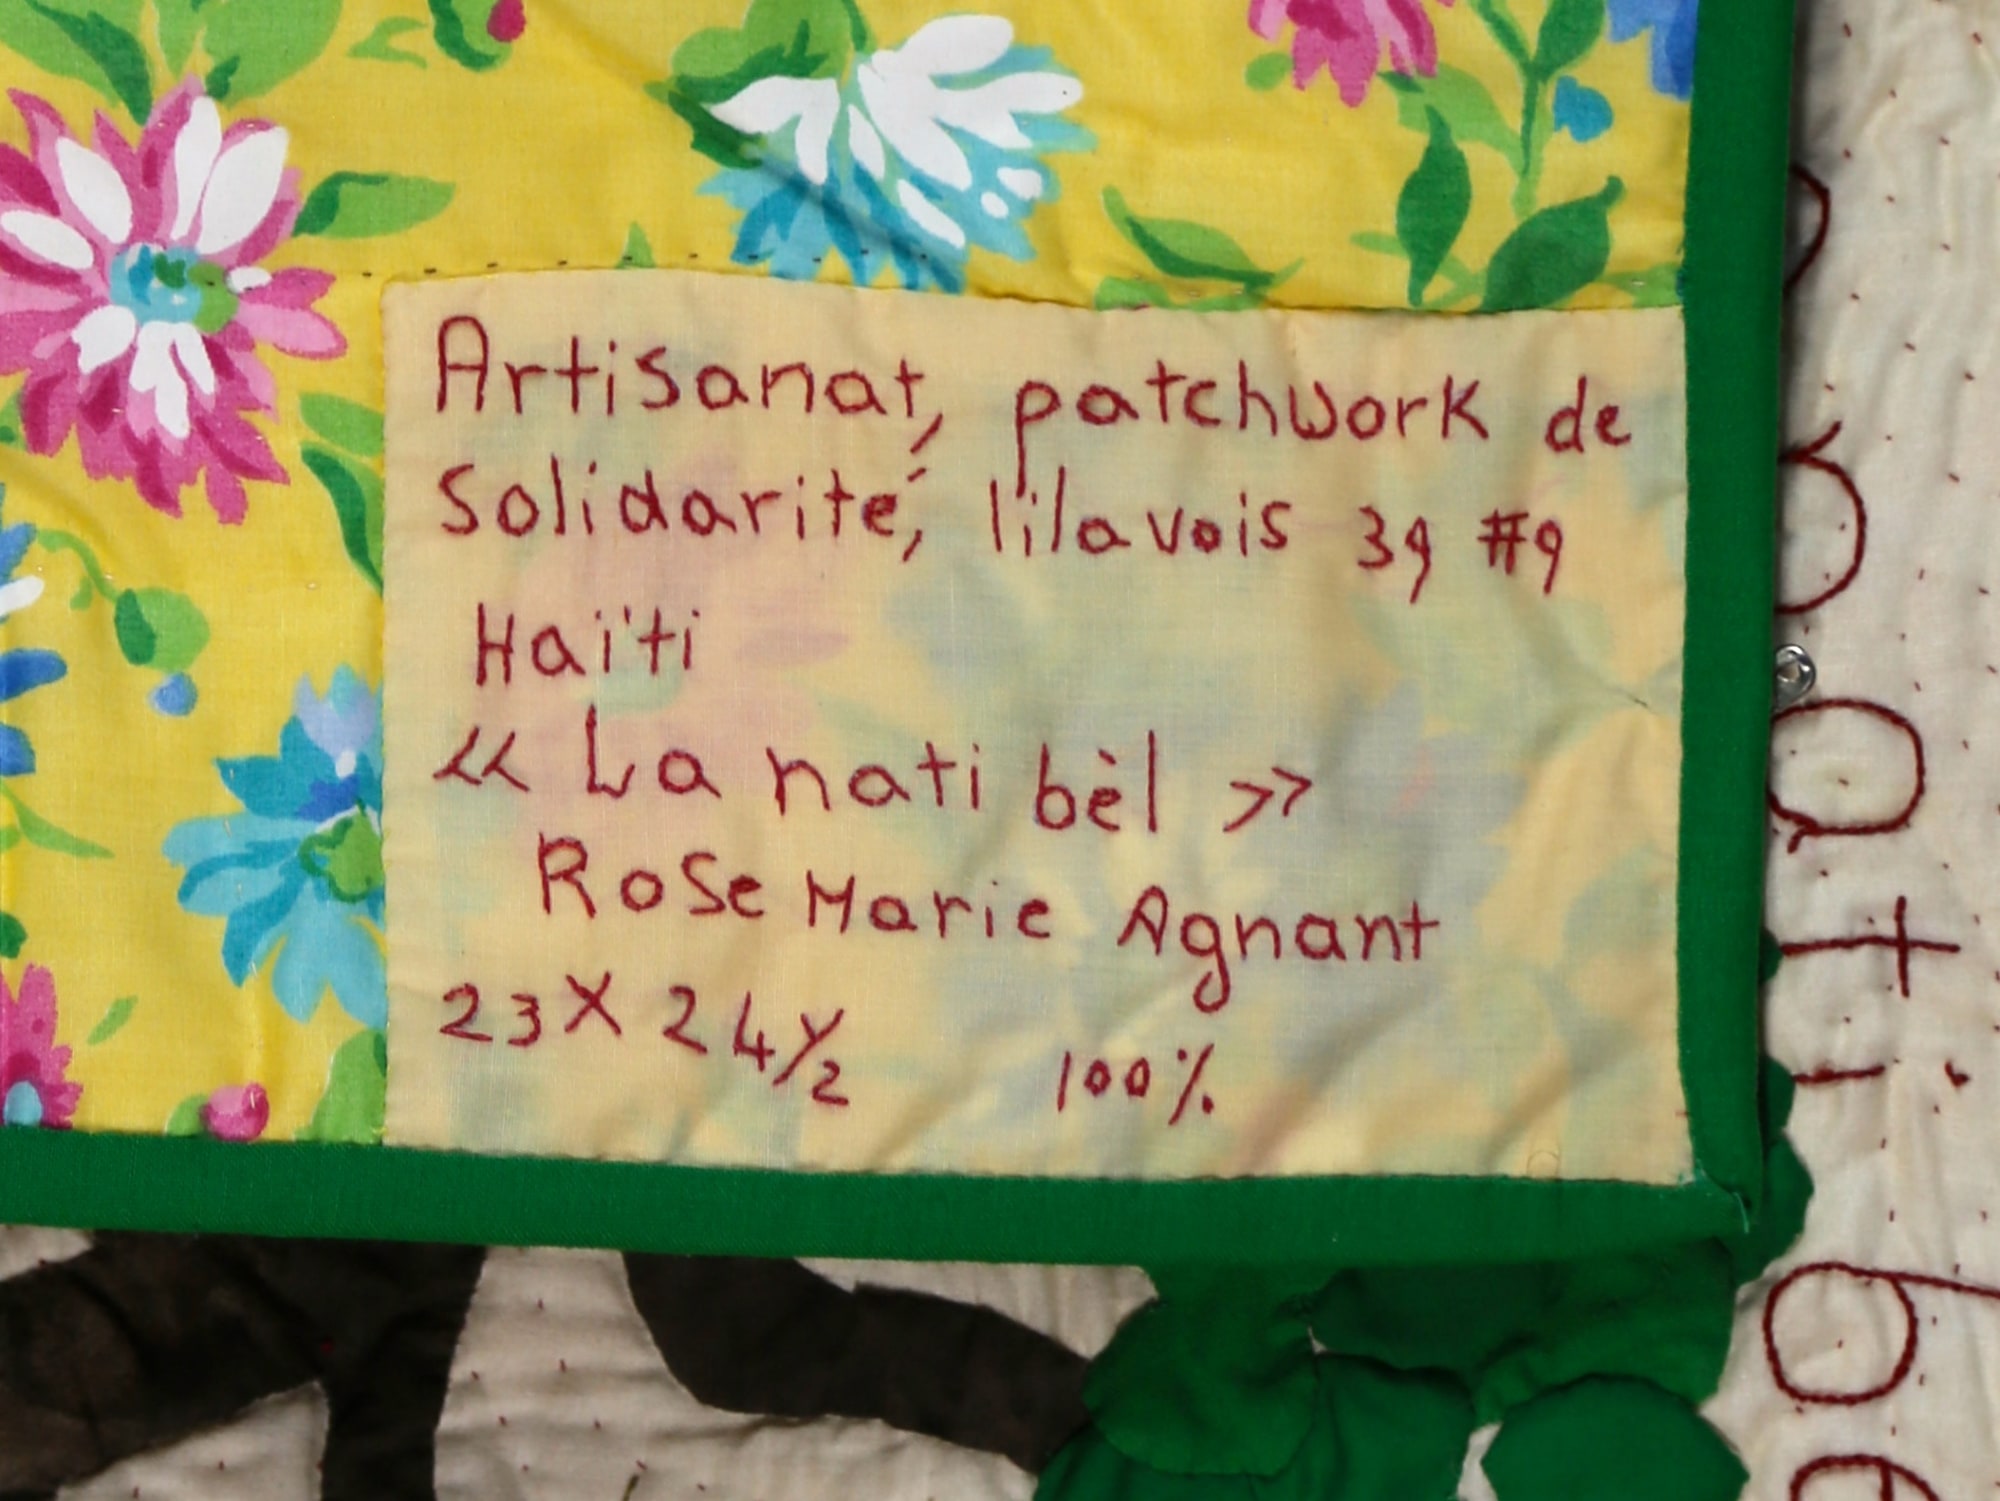 Artisanat, patchwork de
Solidarité, lilavois 39 #9
Haïti
« La nati bèl »
Rose Marie Agnant
23 X 24 1/2 100%
nati be